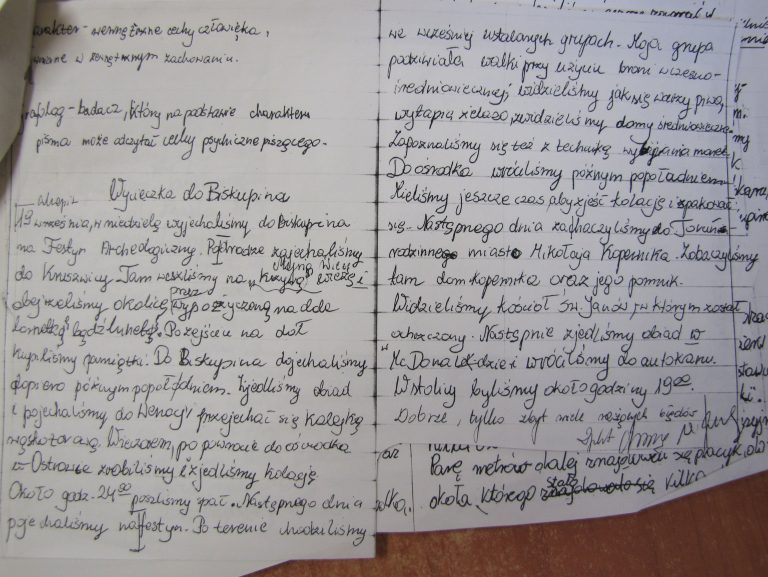 charakter - wewnętrzne cechy człowieka,
w zewnętrznym zachowaniu.
grafolog - badacz, który na podstawie charakteru
pisma może odczytać cechy psychiczne piszącego.
Wycieczka do Biskupina
19 września, w niedzielę wyjechaliśmy do Biskupina
na Festyn Archeologiczny. Po drodze zajechaliśmy
do Kruszwicy. Tam weszliśmy na "Mysią Wieżę" i
obejrzeliśmy okolicę przez wypożyczoną na dole
lornetkę bądź lunetę. Po zejściu na dół
kupiliśmy pamiątki. Do Biskupina dojechaliśmy
dopiero późnym popołudniem. Zjedliśmy obiad
i pojechaliśmy do Wenecji przejechać się kolejką
wąskotorową. Wieczorem, po powrocie do ośrodka
w Ostrowie zrobiliśmy i zjedliśmy kolację
Około godz. 24 00 poszliśmy spać. Następnego dnia
pojechaliśmy na festyn. Po terenie chodziliśmy
we wcześniej ustalonych grupach. Moja grupa
podziwiała walki przy użyciu broni wczesno-
średniowiecznej, widzieliśmy jak się warzy piwo,
wytapia żelazo, zwiedzieliśmy domy średniowieczne.
Zapoznaliśmy się też z techniką wybijania monet.
Do ośrodka wróciliśmy późnym popołudniem
Mieliśmy jeszcze czas, aby zjeść kolację i spakować
się. Następnego dnia zahaczyliśmy do Torunia -
rodzinnego miasta Mikołaja Kopernika. Zobaczyliśmy
tam dom kopernika oraz jego pomnik.
Widzieliśmy kościół Św. Janów, w którym został
ochrzczony. Następnie zjedliśmy obiad w
"Mc Donald'dzie i wróciliśmy do autokaru.
W stolicy byliśmy około godziny 19 00.
Dobrze, tylko zbyt wiele rażących błędów
Parę metrów dalej znajdował się placyk,
około którego stało kilka